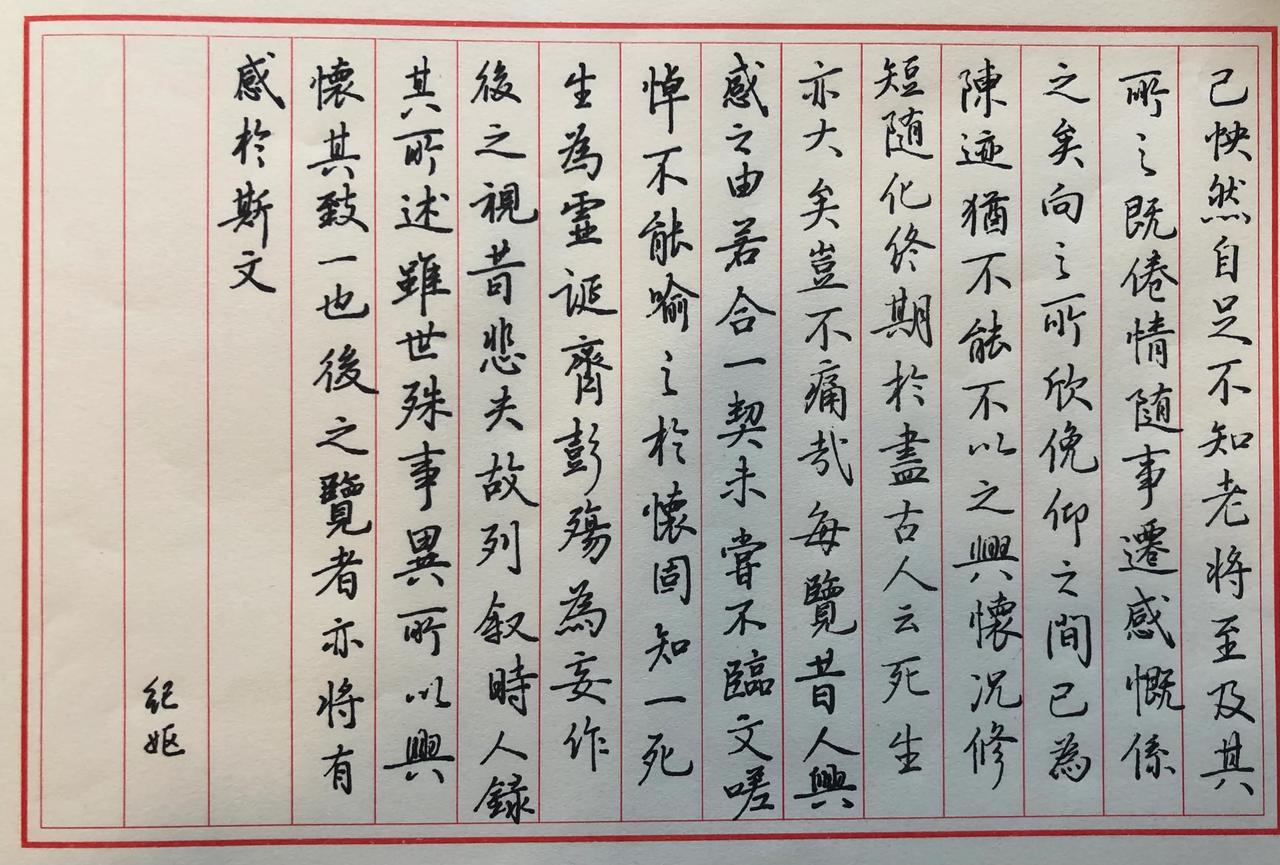 己怏然自足不知老将至及其
所之既倦情随事遷感慨係
之矣向之所欣俛仰之間已為
陳迹猶不能不以之興懷况修
短随化终期於盡古人云死生
亦大矣豈不痛哉每覽昔人興
感之由若合一契未嘗不臨文嗟
悼不能喻之於懷固知一死
生為虛誕齊彭殤為妄作
後之視昔悲夫故列叙時人録
其所述雖世殊事異所以興
懷其致一也後之覽者亦将有
感於斯文
纪姬